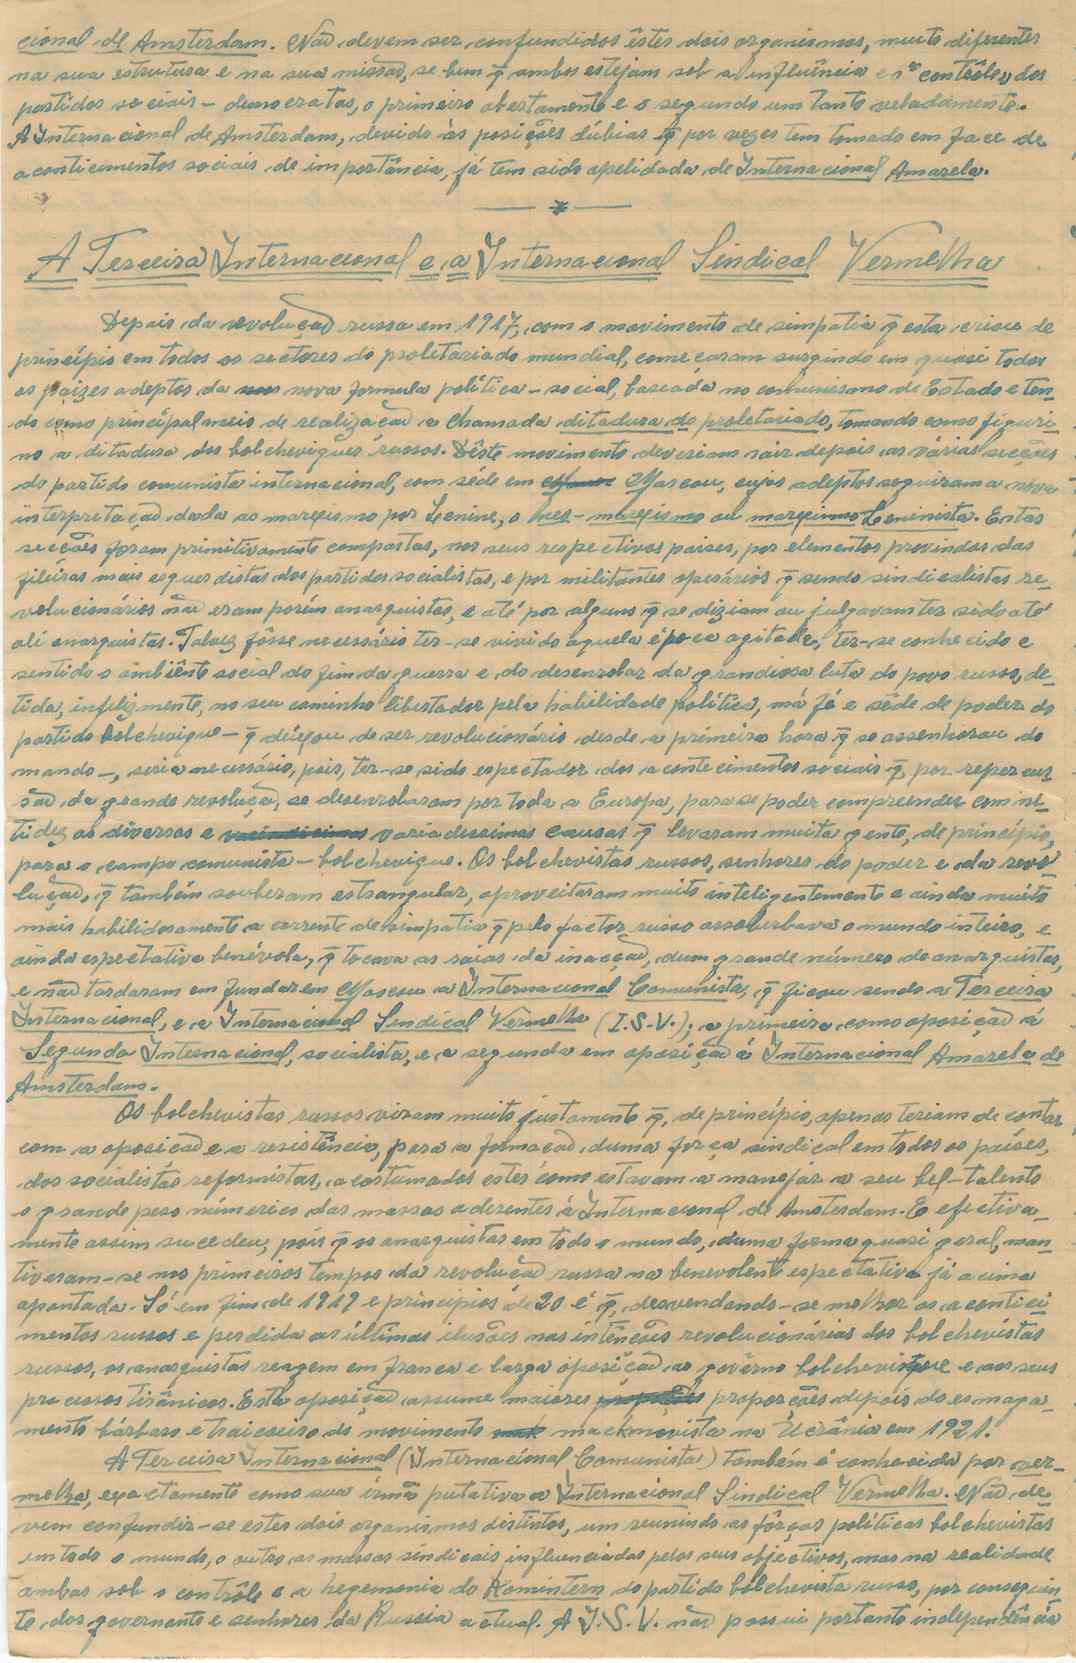 cional de Amsterdam. Não devem ser confundidos êstes dois organismos, muito diferentes
na sua estrutura e na sua missão, se bem q̃ ambos estejam sob a influência e o contrôle dos
partidos sociais-democratas, o primeiro abertamente e o segundo um tanto veladamente.
A Internacional de Amsterdam, devido às posições dúbias q̃ por vezes tem tomado em face de
aconticimentos sociais de importância, já tem sido apelidada de Internacional Amarela.
A Terceira Internacional e a Internacional Sindical Vermelha
Depois da revolução russa em 1917, com o movimento de simpatia q̃ esta criou de
princípio em todos os sectores do proletariado mundial, começaram surgindo em quasi todos
os paizes adeptos da nova formula política-social, baseada no comunismo de Estado e ten-
do como principal meio de realização a chamada ditadura do proletariado, tomando como figuri-
no a ditadura dos bolcheviques russos. Dêste movimento deveriam sair depois as várias secções
do partido comunista internacional, com séde em Moscou, cujos adeptos seguiram a nova
interpretação dada ao marxismo por Lenine, o neo-marxismo ou marxismo Leninista. Estas
secções foram primitivamente compostas, nos seus respectivos paises, por elementos provindos das
fileiras mais esquerdistas dos partidos socialistas, e por militantes operários q̃ sendo sindicalistas re-
volucionários não eram porém anarquistas, e até por alguns q̃ se diziam ou julgavam ter sido até
ali anarquistas. Talvez fôsse necessário ter-se vivido aquela época agitada, ter-se conhecido e
sentido o ambiente social do fim da guerra e do desenrolar da grandiosa luta do povo russo, de-
tida, infelizmente, no seu caminho libertador pela habilidade política, má fé e sêde de poder do
partido bolchevique - q̃ deixou de ser revolucionário desde a primeira hora q̃ se assenhorou do
mando -, seria necessário, pois, ter-se sido espectador dos acontecimentos sociais q̃, por repercus-
são da grande revolução, se desenrolaram por toda a Europa, para se poder compreender com ni-
tidez as diversas e variadissimas causas q̃ levaram muita gente, de princípio,
para o campo comunista-bolchevique. Os bolchevistas russos, senhores do poder e da revo-
lução, q̃ também souberam estrangular, aproveitaram muito inteligentemente e ainda muito
mais habilidosamente a corrente de simpatia q̃ pelo factor russo assoberbava o mundo inteiro, e
ainda espectativa benévola, q̃ tocava as raias da inacção, dum grande número de anarquistas,
e não tardaram em fundar em Moscou a Internacional Comunista, q̃ ficou sendo a Terceira
Internacional, e a Internacional Sindical Vermelha (I.S.V.); a primeira como oposição á
Segunda Internacional, socialista, e a segunda em oposição á Internacional Amarela de
Amsterdam.
Os bolchevistas russos viram muito justamente q̃, de princípio, apenas teriam de contar
com a oposição e a resistência, para a formação duma força sindical em todos os países,
dos socialistas reformistas, acostumados estes como estavam a manejar a seu bel-talento
o grande peso númerico das massas aderentes á Internacional de Amsterdam. E efectiva-
mente assim sucedeu, pois q̃ os anarquistas em todo o mundo, duma forma quasi geral, man-
tiveram-se nos primeiros tempos da revolução russa na benevolente espectativa já acima
apontada. Só em fim de 1919 e princípios de 20 é q̃, desvendando-se melhor os acontici-
mentos russos e perdida as últimas ilusões nas intenções revolucionárias dos bolchevistas
russos, os anarquistas reagem em franca e larga oposição ao govêrno bolchevique e aos seus
processos tirânicos. Esta oposição assume maiores proporções depois do esmaga-
mento bárbaro e traiçoeiro do movimento mackmovista na Ucrânia em 1921.
A Terceira Internacional (Internacional Comunista) também é conhecida por ver-
melha, exactamente como sua irmã putativa a Internacional Sindical Vermelha. Não de-
vem confundir-se estes dois organismos distintos, um reunindo as fôrças políticas bolchevistas
em todo o mundo, o outro as massas sindicais influenciadas pelos seus objectivos, mas na realidade
ambas sob o contrôle e a hegemonia do Komintern do partido bolchevista russo, por conseguin-
te dos governante e senhores da Russia actual. A I.S.V. não possui portanto independência